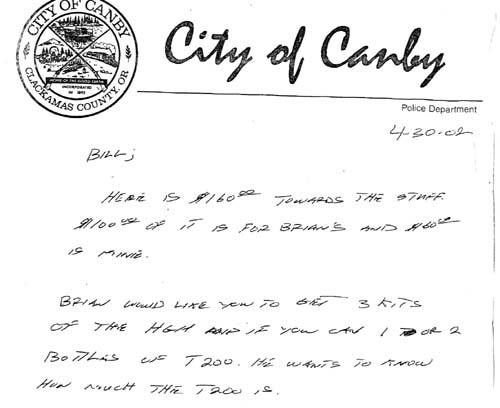 CITY OF CANBY
CLACKAMAS COUNTY, OR
INCORPORATED
IN 1893
City of Canby
Police Department
4-30-02
BILL;
HERE IS $160.00 TOWARDS THE STUFF.
$100.00 OF IT IS FOR BRIAN'S AND $60.00
IS MINE.
BRIAN WOULD LIKE YOU TO GET 3 KITS
OF THE HGH AND IF YOU CAN 1 OR 2
BOTTLES OF T200. HE WANTS TO KNOW
HOW MUCH THE T200 IS.